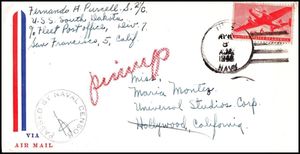 Fernando A. Purcell, S. 2/c
U.S.S. South Dakota
℅ Fleet Post Office, Div. 7
San Francisco, 5, Calif
U.S.
NAVY
pinup
Miss
Maria Montez
Universal Studios Corp.
Hollywood, California
PASSED BY NAVAL CENSOR
VIA
AIR MAIL